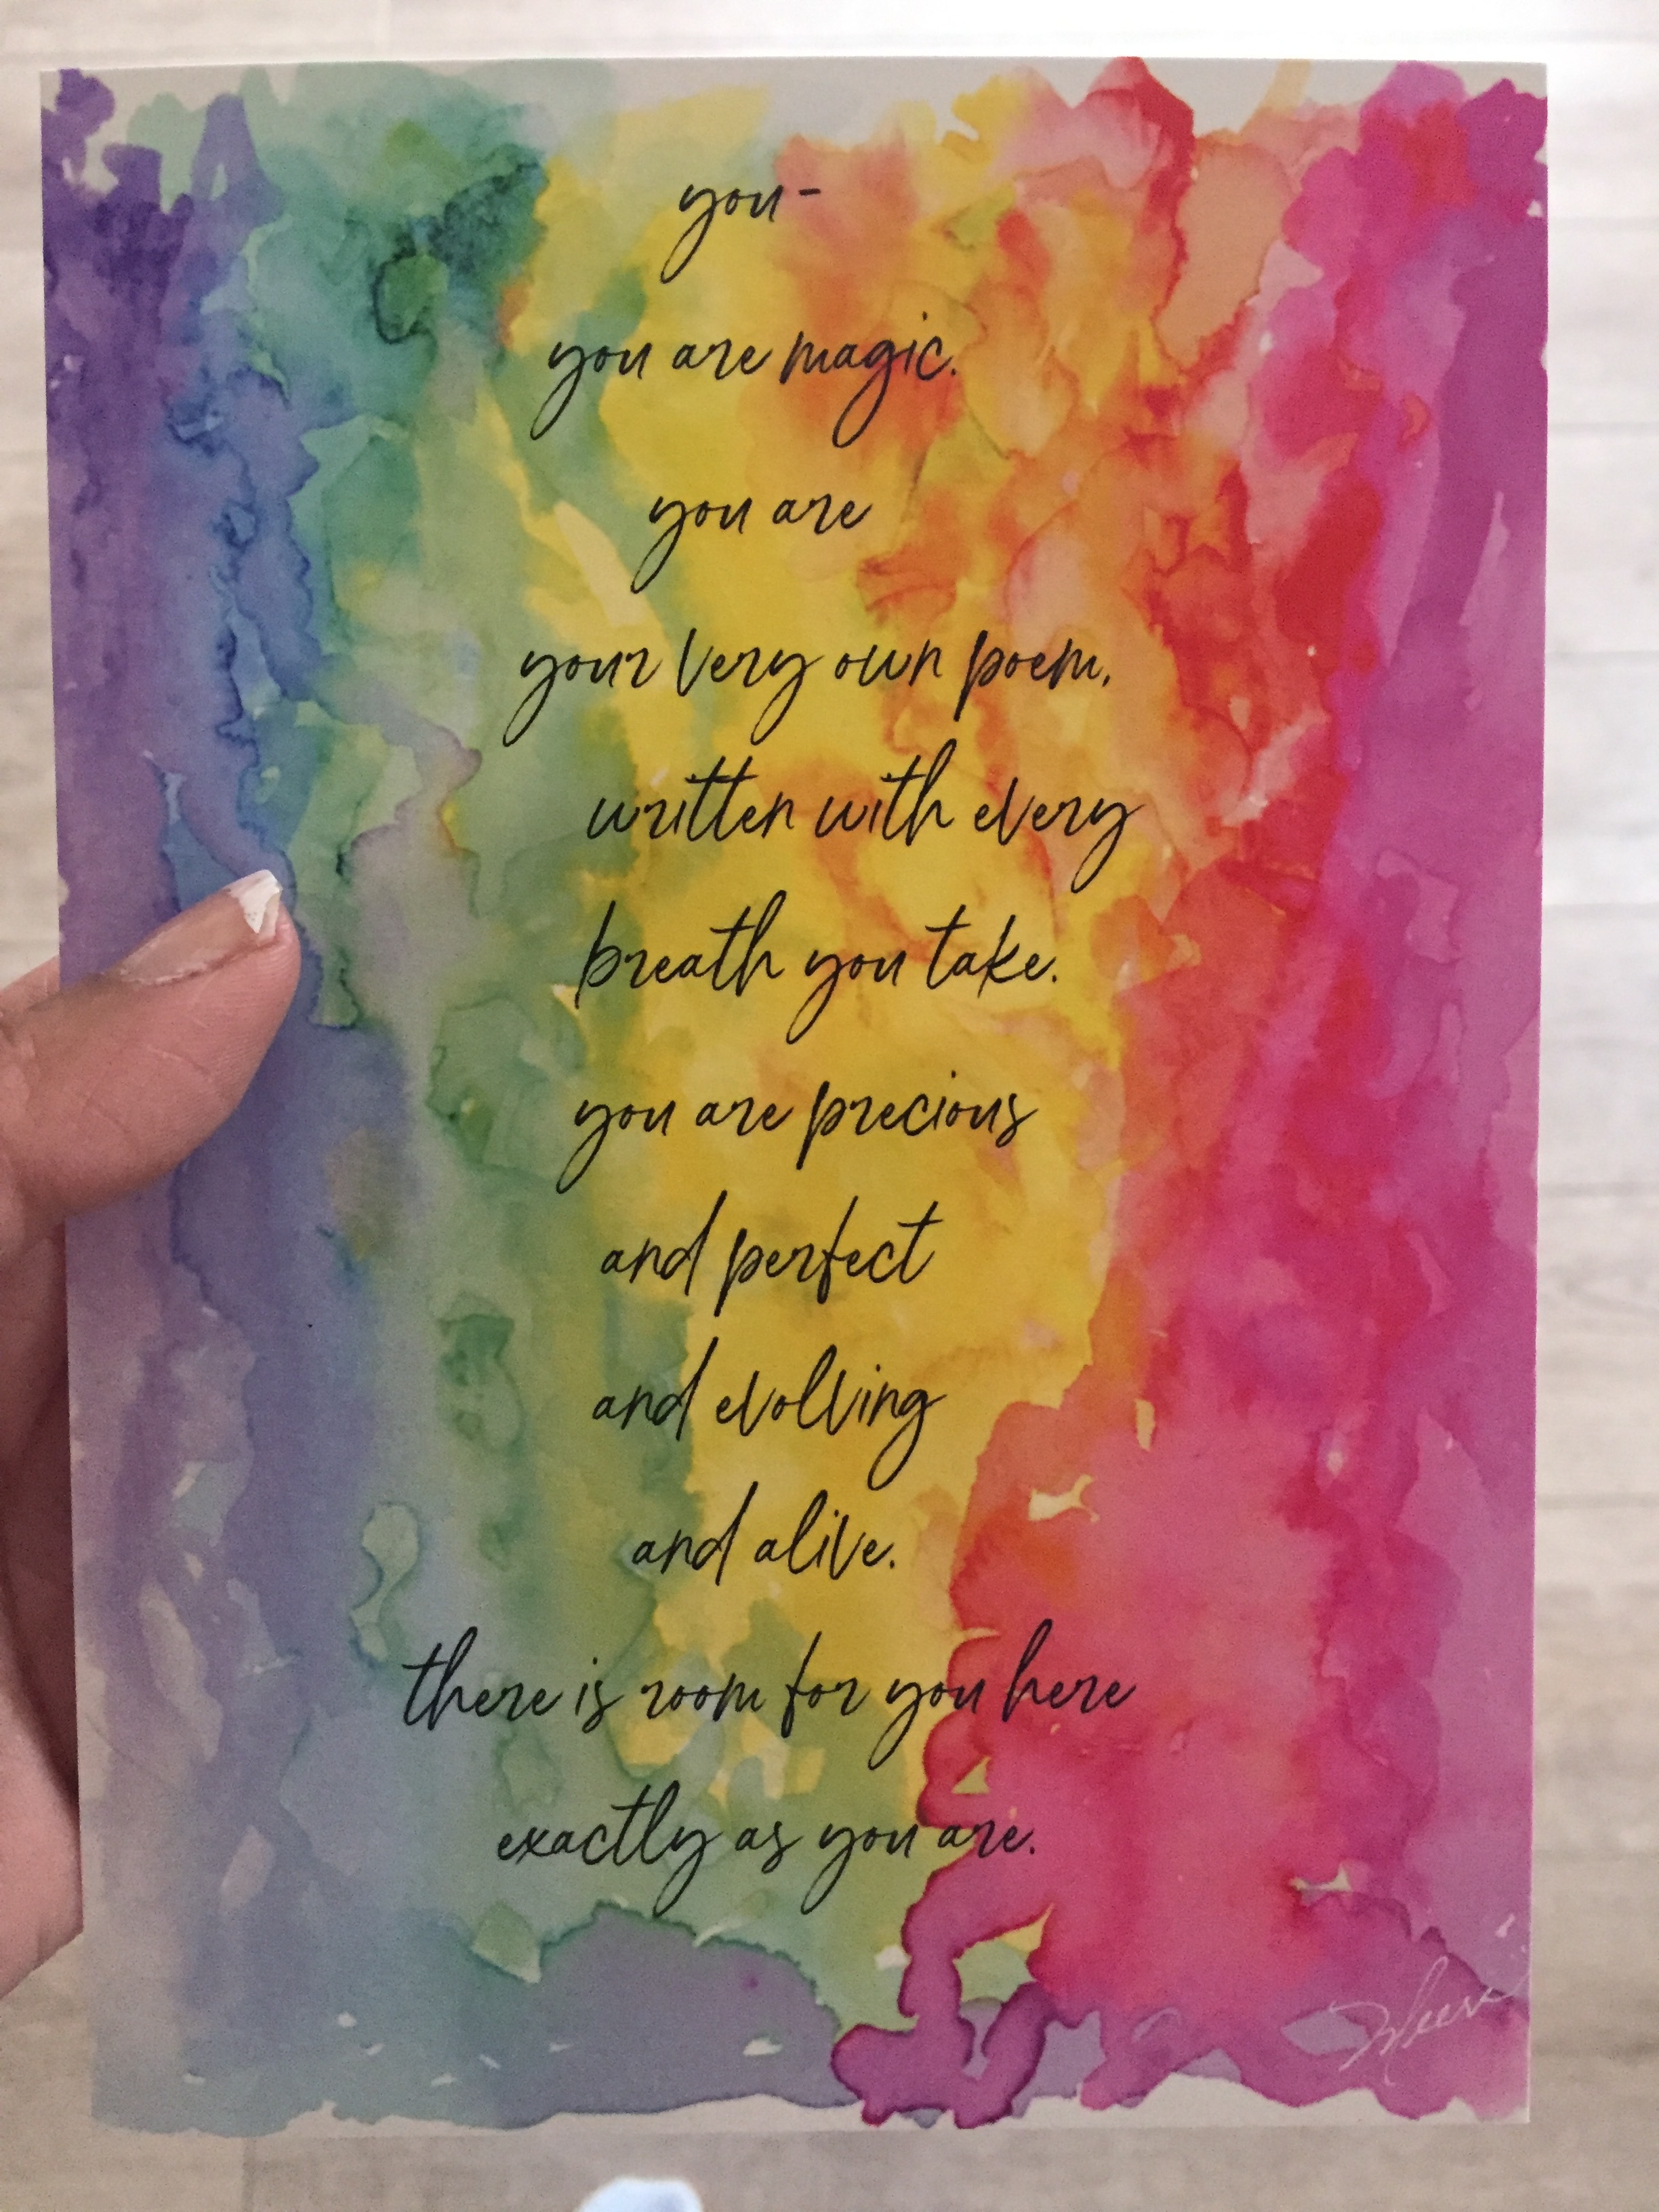 you-
you are magic.
you are
your very own poem,
written with every
breath you take.
you are precious
and perfect
and evolving
and alive.
there is room for you here
exactly as you are.